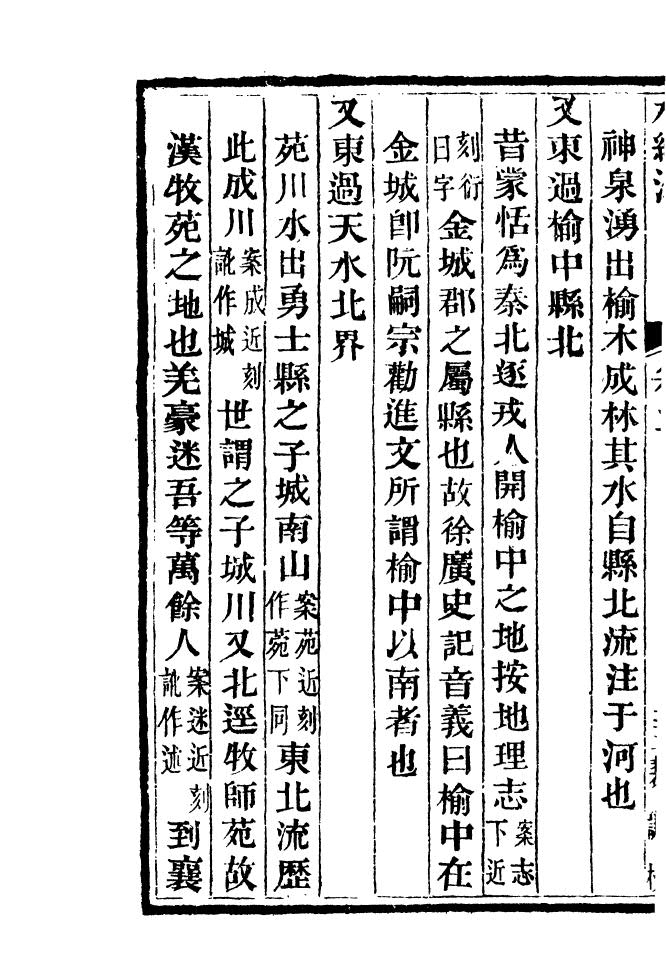 水經注
神泉湧出榆木成林其水自縣北流注于河也
又東過榆中縣北
昔蒙恬爲秦北逐戎人開榆中之地按地理志案志下近
刻衍日字金城郡之屬縣也故徐廣史記音義曰榆中在
金城卽阮嗣宗勸進文所謂榆中以南者也
又東過天水北界
苑川水出勇士縣之子城南山案苑近刻作菀下同東北流歷
此成川案成近刻訛作城世謂之子城川又北逕牧師苑故
漢牧苑之地也羌豪迷吾等萬餘人案迷近刻訛作述到襄